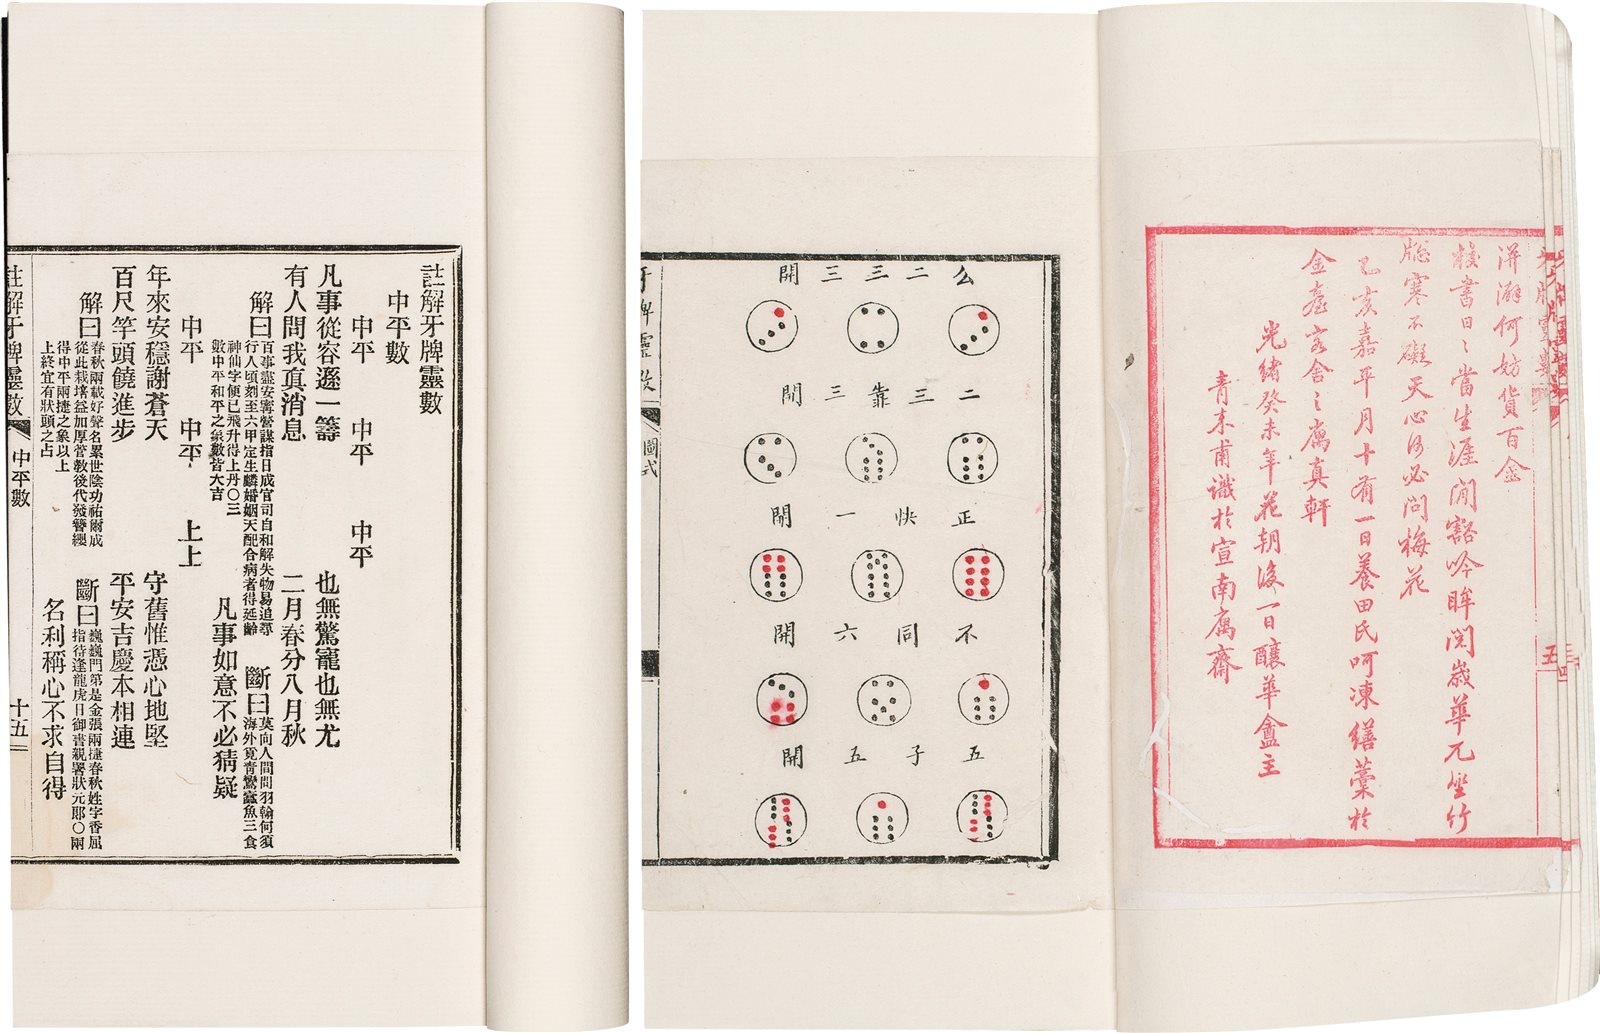 洴澼何妨貨百金
校書日〻當生涯閒豁吟眸閱歲華兀坐竹
牕寒不礙天心何必問梅花
乙亥嘉平月十有一日養田氏呵凍繕藁於
金臺客舍之寓真軒
光緒癸未年花朝後一日釀華盦主
青末甫識於宣南寓齋
公二三三開
二三靠三開
正快一開
不同六開
五子五開
牙牌靈數 圖式
註解牙牌靈數
中平數
中平 中平 中平
凡事從容遜一籌 也無驚寵也無尤
有人問我真消息 二月春分八月秋
解曰 百事盡安寧營謀指日成官司自和解失物易追尋
行人頃刻至六甲定生麟婚姻天配合病者得延齡
斷曰 莫向人間問羽翰何須
海外覓靑鸞蠹魚三食
神仙字便已飛升得上丹〇三
數中平和平之象數皆大吉
凡事如意不必猜疑
中平 中平 上上
年來安穩謝蒼天 守舊惟憑心地堅
百尺竿頭饒進步 平安吉慶本相連
解曰 春秋兩載好聲名累世陰功祐爾成
從此栽培益加厚管教後代發簪纓
斷曰 巍巍門第是金張兩捷春秋姓字香屈
指待逢龍虎日御書親署狀元郎〇兩
得中平兩捷之象以上
上終宜有狀頭之占
名利稱心不求自得
註解牙牌靈數 中平數 十五